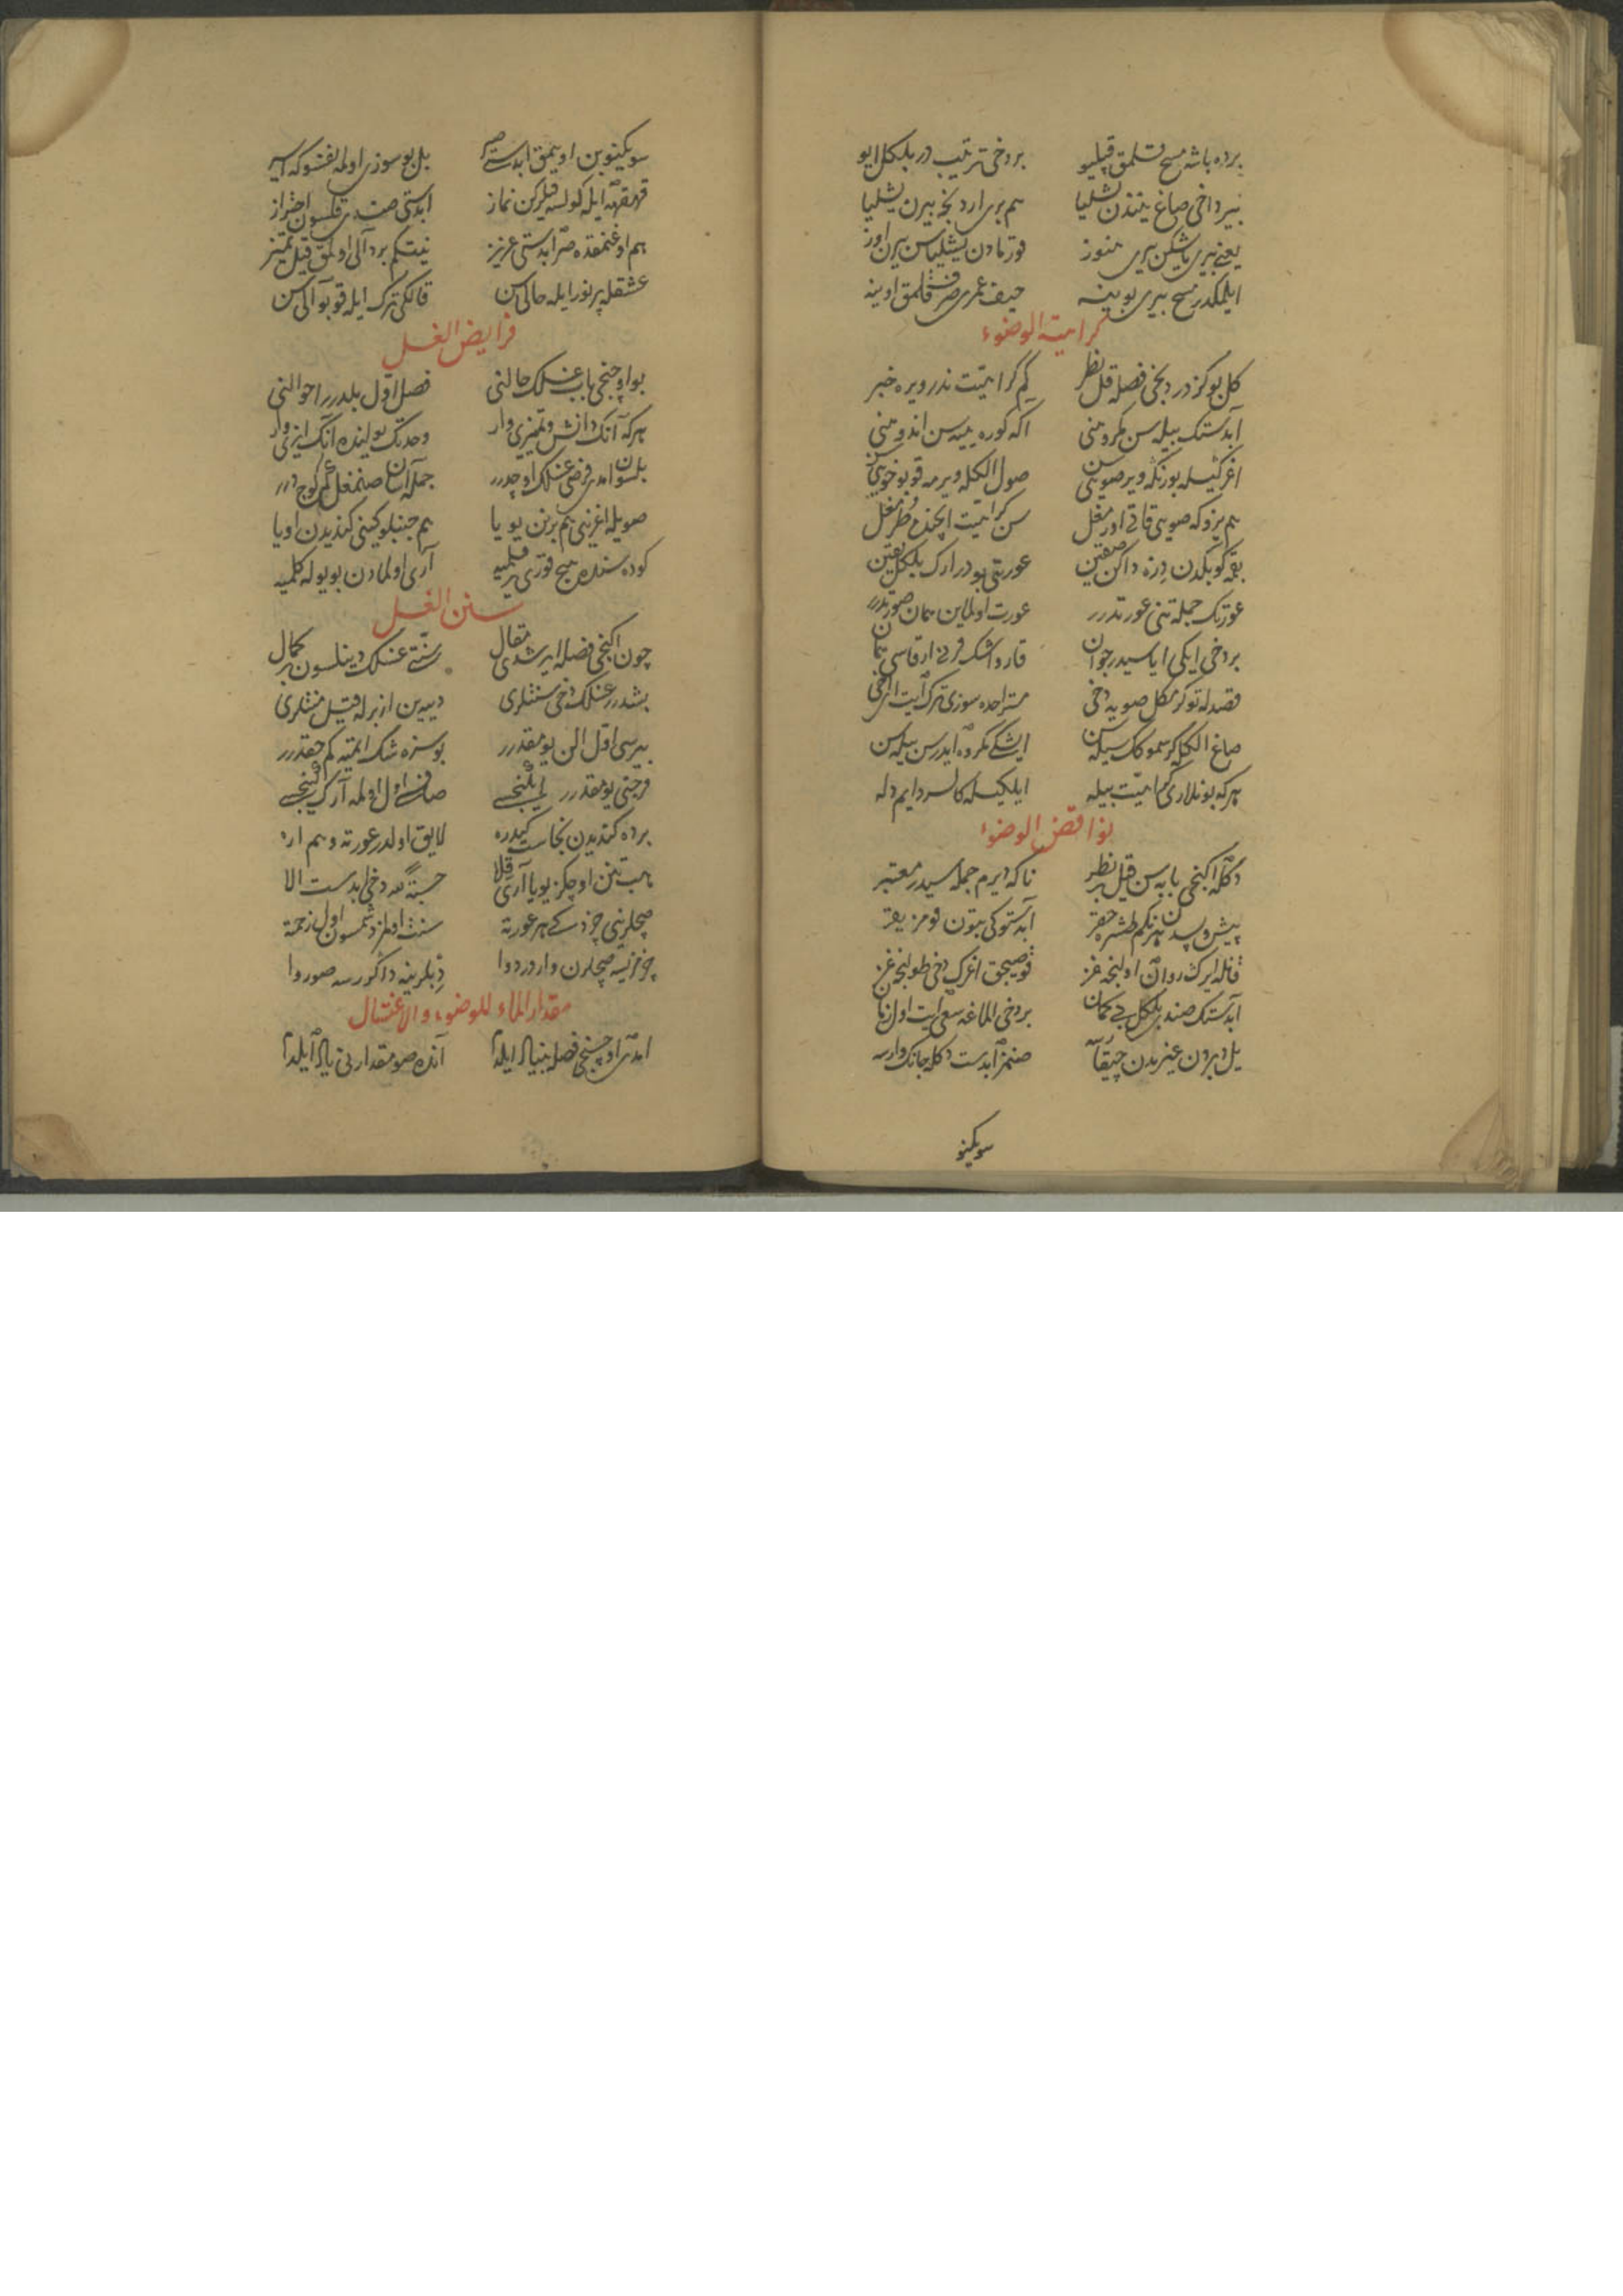 برده باشه مسح قلمق قپلیو بردخی ترتیب در بلکل ایو
بیرداخی صاغ یتندن بشلیا هم بری اردنجه بیرن بشلیا
یعنی بیری یاشکن بیری هنوز قورتمادن بشلیاسن بیرن اوز
ایلمکدر مسح بیری بوینه حیف عمری صرف قلمق اوینه
كراهیة الوضوء
کل بوکز دردنجی فصله قل نظر کم کراهیت ندر ویره خبر
آبدستک بیله سن مکروهنی اکه کوره ییمه سن اندوهنی
اغز کیسله بورنکه ویر صوینی صول الکله ویرمه قو بو خویی
هم یزوکه صویی قاتی اورمغل سن کراهیت ایچنده طرمغل
عورتی بودر ارک بلکل یقین
عورتک جمله تنی عورتدرر عورت اولماین همان صورتدرر
بردخی ایکی ایاسیدر جوان قارداشک قرنی ارقاسی
قصدله توکرمکل صویه دخی مستراحده سوزی ترک ایت ای اخی
صاغ الکله کر سموکک سیله سن ایشکی مکروه ایدرسن بیله سن
هرکه بونلاری کراهیت بیله ایلکیله کالسر دایم دله
نواقض الوضوء
دکله اکنجی بابه سن قیل نظر تاکه دیرم جمله سیدر معتبر
پیش و پسدن هرنکم طشره چقر آبدستوکی بتون قومز یقر
قانله ایرک روان اولنجه غز قوصیجق اغزک دخی طولنجه غز
آبدستک صندی بلکل بی کمان بردخی الماغه سعی ایت اول زمان
یل دبردن غیریدن چیقا صنمز آبدست دکله جانک وارسه
سویکنو
سویکنوبن اویمق ابدستی صر بل بو سوزی اولمه نفسوکه اسیر
قهقهه ایله کولسه قیلرکن نماز ابدستی صندی قلسون احتراز
هم اوغنمقده صر ابدستی عزیز نیتکم بر دالی اولمق قیل تمیز
عشقله پرنور ایله حالی سن قالکی ترک ایله قو بو آلی سن
فرایض الغسل
بو اوچنجی باب غسلک حالنی فصل اول بلدرر احوالنی
هرکه آنک دانش و تمیزی وار وحدتک یولنده انک ایزی وار
بلسون امدی فرضی غسلک اوچدرر جمله آسان صنمغل کم کوجدرر
صویله اغزنی هم برنن یویا هم جنبلوکینی کندیدن اویا
کوده سنده هیچ قوری قلمیه آری اولمادن بو یوله کلمیه
سنن الغسل
چون اکنجی فصله ایرشدی مقال سنتی غسلک دینلسون بر کمال
بشدرر غسلک دخی سنتلری دییه ین ازبرله قیل منتلری
بیرسی اول الن یومقدرر بو سوزه شک ایتمه کم حقدرر
فرجنی یومقدرر ایکنجی صافی اول اولمه آرک ایکنجی
برده کندیدن نجاست کیدره لایق اولدر عورته و هم اره
هب تنن اوچکز یویا آری قلا حسبة لله دخی ابدست الا
صچلرینی چوزسکی هر عورته سنت اولمز دشمسون اول زحمته
چوزیسه صچلرن وارد روا دبلرینه داکورسه صو روا
مقدار الماء للوضوء والاغتسال
امدی اوچنجی فصله بنیاد ایلدم آنده صو مقدارنی یاد ایلدم